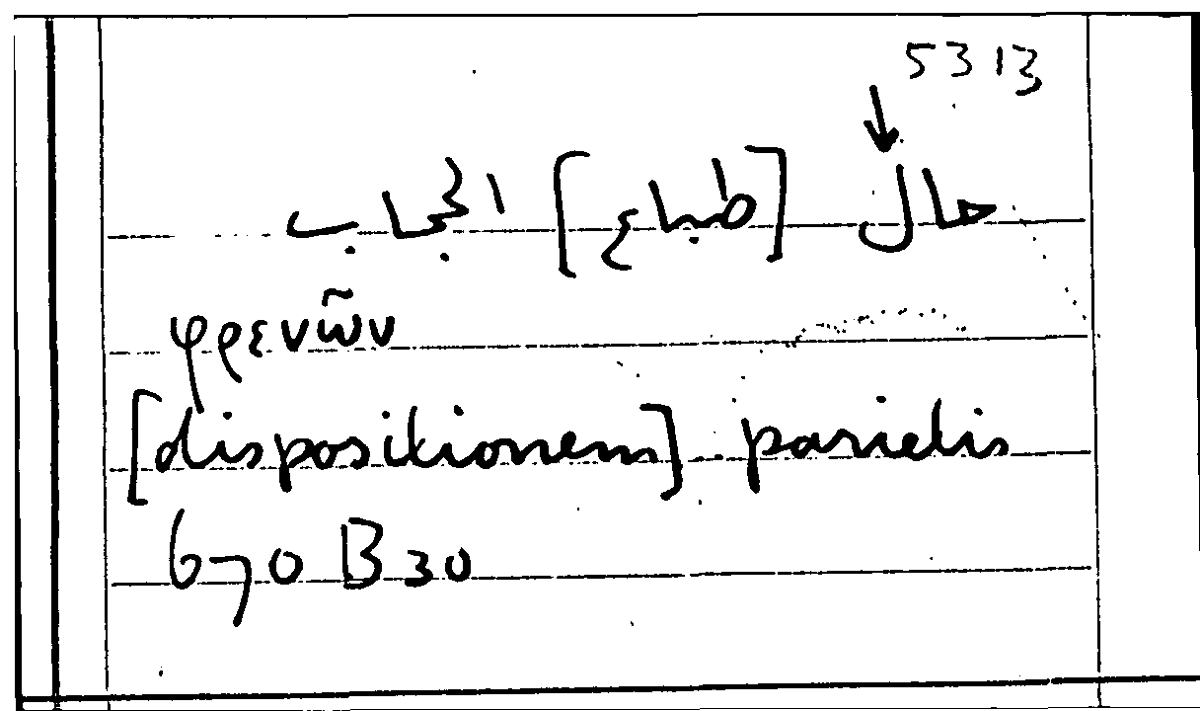 5313
↓
حال [طباع] الحجاب
φρενῶν
[dispositionem] parietis
670 B 30